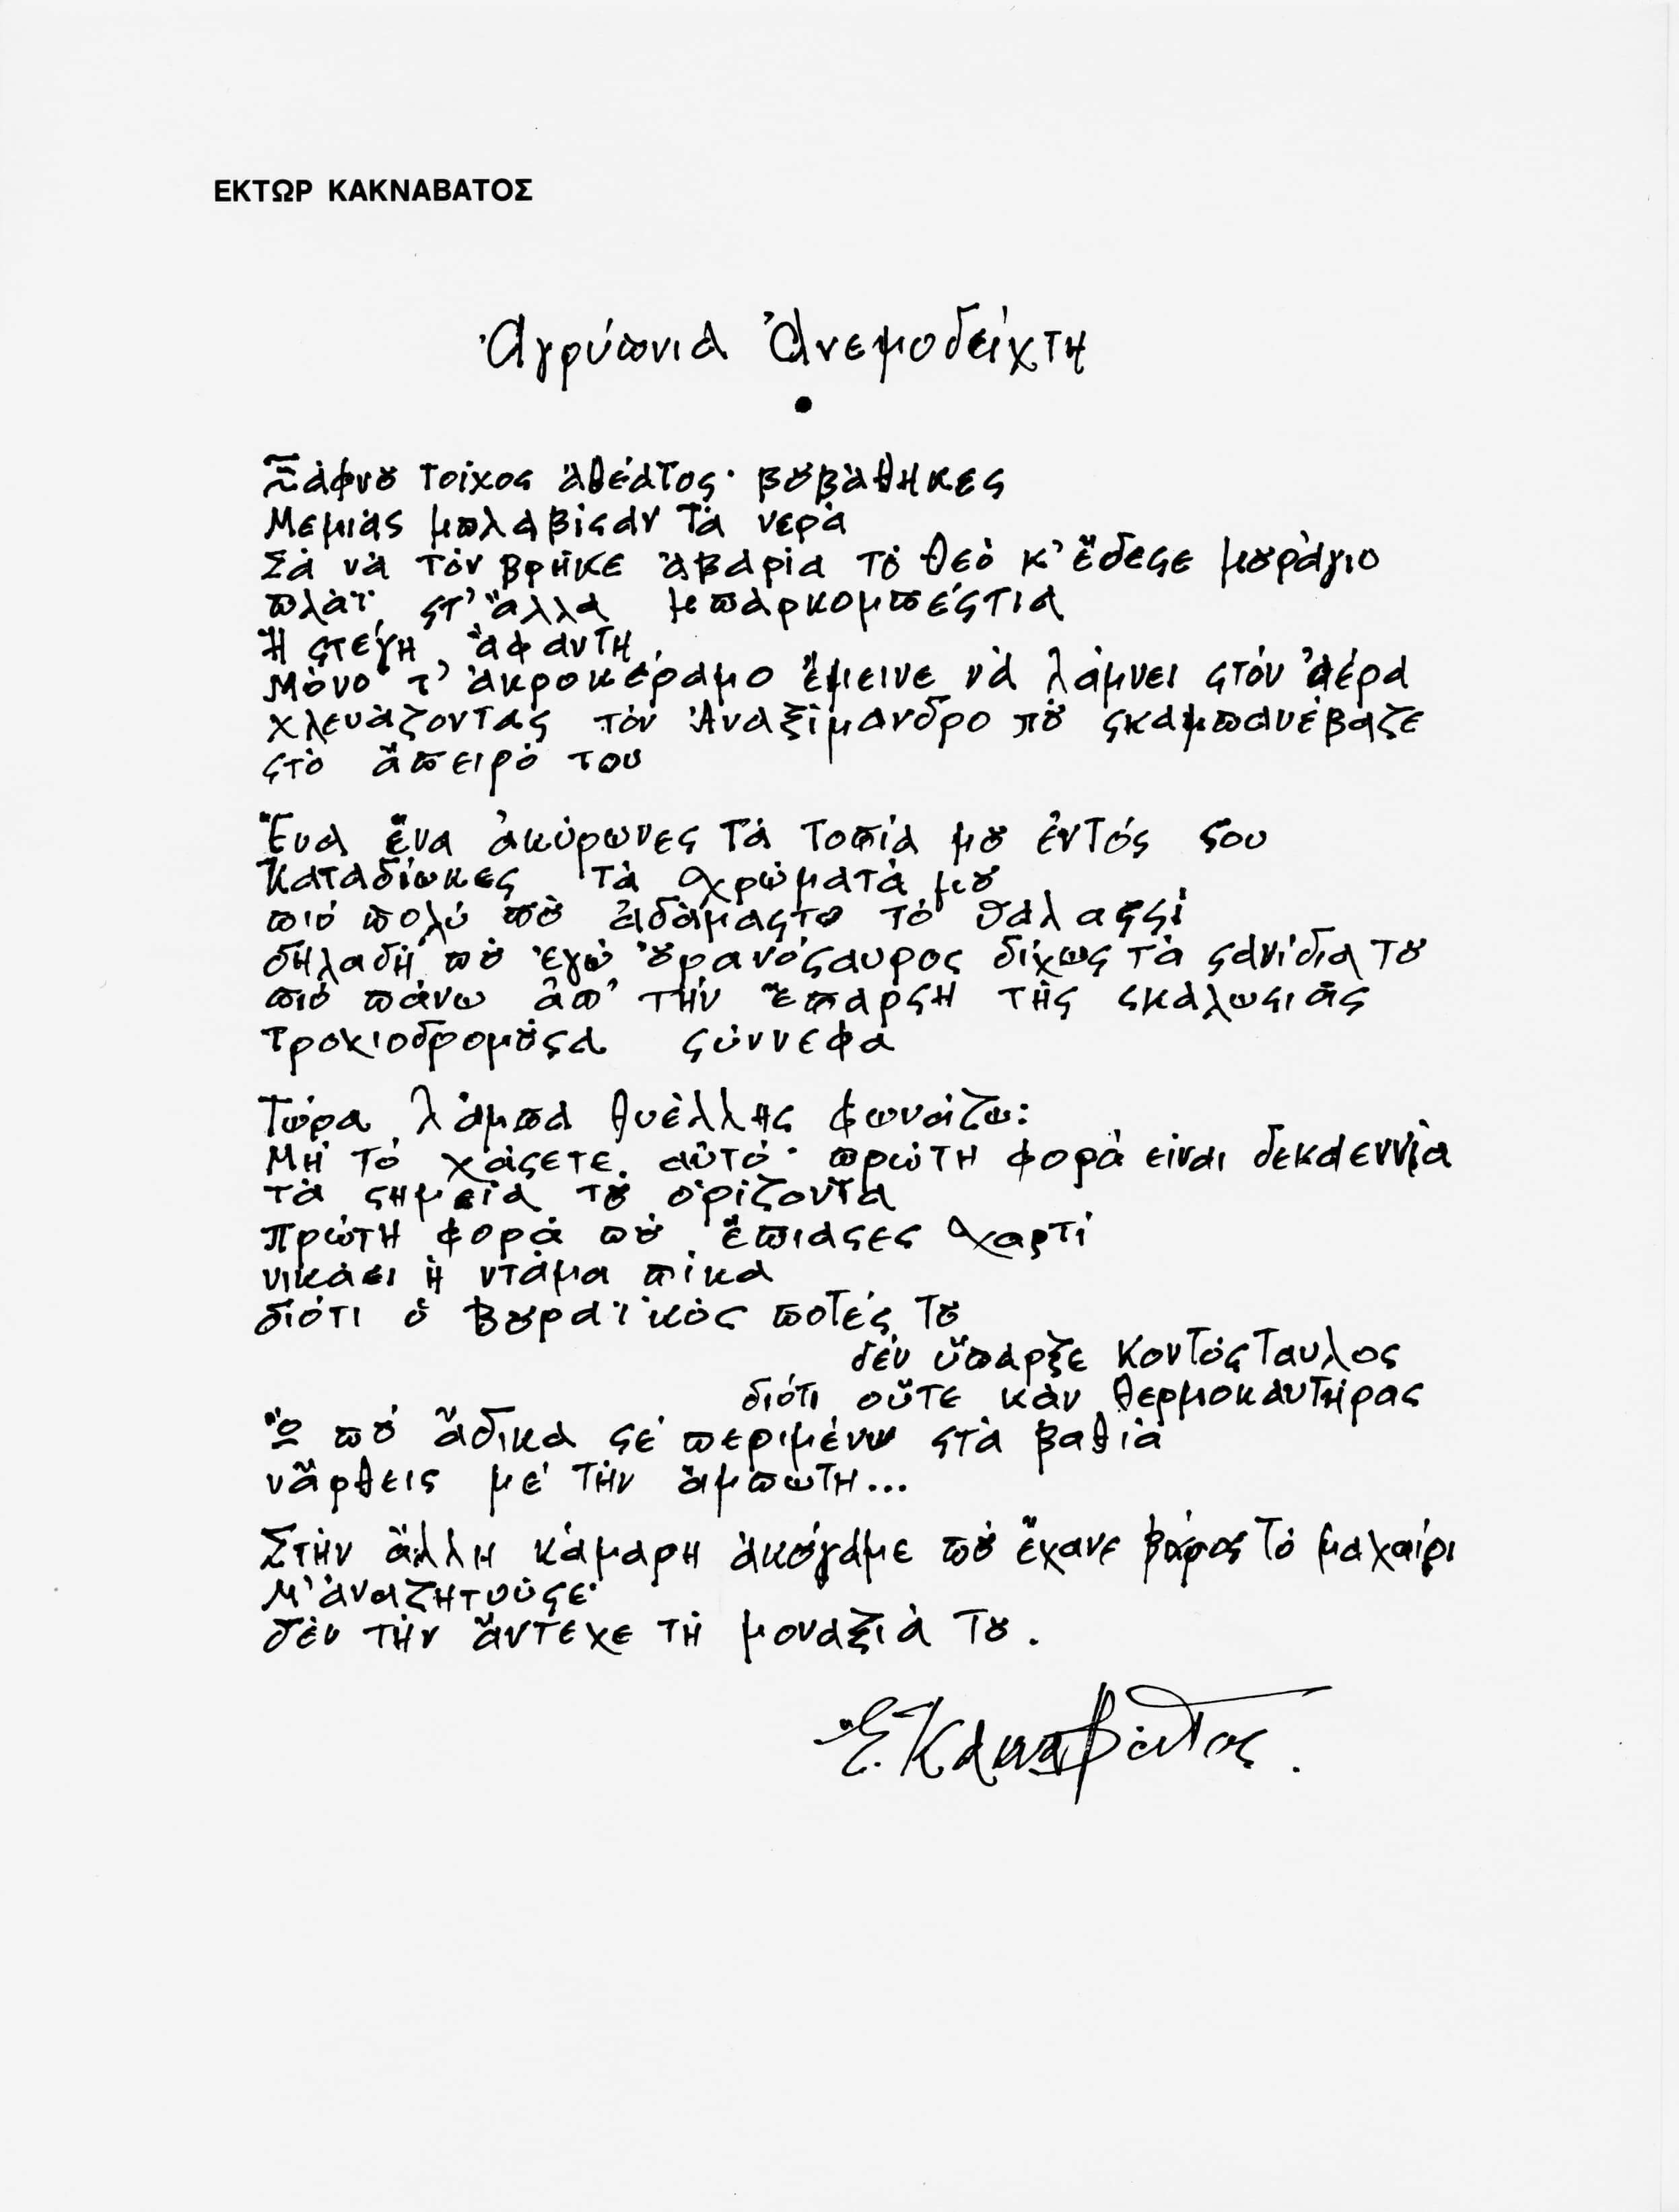 ΕΚΤΩΡ ΚΑΚΝΑΒΑΤΟΣ
Ἀγρύπνια Ἀνεμοδείχτη
•
Ξάφνȣ τοίχος ἀθέατος· βȣβάθηκες
Μεμιάς μπλαβίσαν τὰ νερά
Σὰ νὰ τὸν βρῆκε ἀβαρία τȣ̂ θεὸ κ' ἔδεσε μȣράγιο
πλάϊ στ' ἄλλα μπαρκομπέστια
Ἡ στέγη ἄφαντη
Μόνο τ' ἀκροκέραμο ἔμεινε νὰ λάμνει στὸν ἀέρα
χλευάζοντας τὸν Ἀναξίμανδρο πȣ̀ σκαμπανέβαζε
στὸ ἄπειρό του
Ἕνα ἕνα ἀκύρωνες τὰ τοπία μȣ ἐντός σου
Καταδίωκες τὰ χρώματά μȣ
πιό πολύ πȣ̀ ἀδάμαστο τό θαλασσί
δηλαδή πȣ̀ ἐγώ ȣ̓ρανόσαυρος δίχως τὰ σανίδια τȣ
πιό πάνω ἀπ' τὴν ἔπαρση τῆς σκαλωσιᾶς
τροχιοδρομȣ̂σα σύννεφα
Τώρα λάμπα θυέλλης φωνάζω:
Μή τό χάσετε αὐτό· πρώτη φορά εἶναι δεκαεννιά
τὰ σημεῖα τȣ̂ ὁρίζοντα
Πρώτη φορά πȣ̀ ἔπιασες χαρτί
νικάει ἡ ντάμα πίκα
διότι ὁ Βȣραϊκός ποτές τȣ
δέν ὕπαρξε Κοντόσταυλος
διότι οὔτε κἀν θερμοκαυτήρας
Ὢ πȣ́ ἄδικα σέ περιμένω στὰ βαθιά
νἄρθεις μέ τὴν ἄμπωτη...
Στὴν ἄλλη κάμαρη ἀκȣ́γαμε πȣ̀ ἔχανε βάρος τό μαχαίρι
Μ' ἀναζητοῦσε·
δὲν τὴν ἄντεχε τή μοναξιά τȣ.
Ἐ. Κακναβάτος.